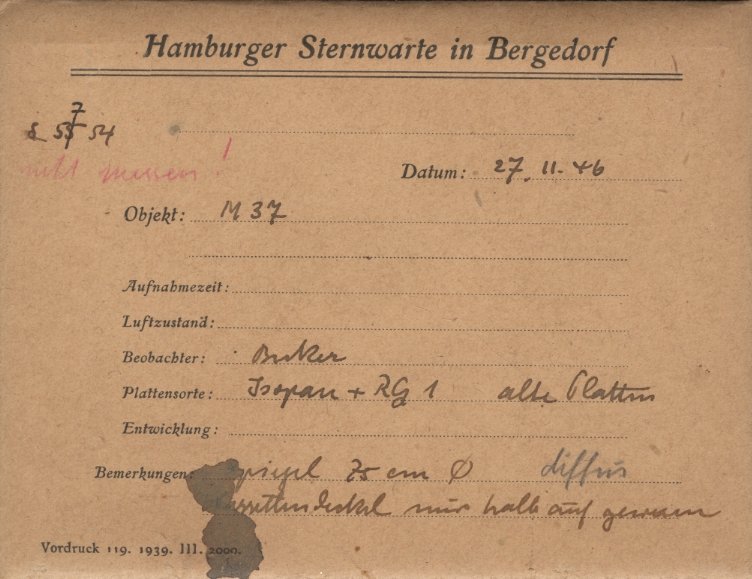 Hamburger Sternwarte in Bergedorf
7
S 55 54
nicht messen!
Datum: 27. 11. 46
Objekt: M 37
Aufnahmezeit:
Luftzustand:
Beobachter: Becker
Plattensorte: Isopan + RG 1 alte Platten
Entwicklung:
Bemerkungen: Spiegel 75 cm Ø diffus
Kassettendeckel nur halb auf gewesen
Vordruck 119. 1939. III. 2000.